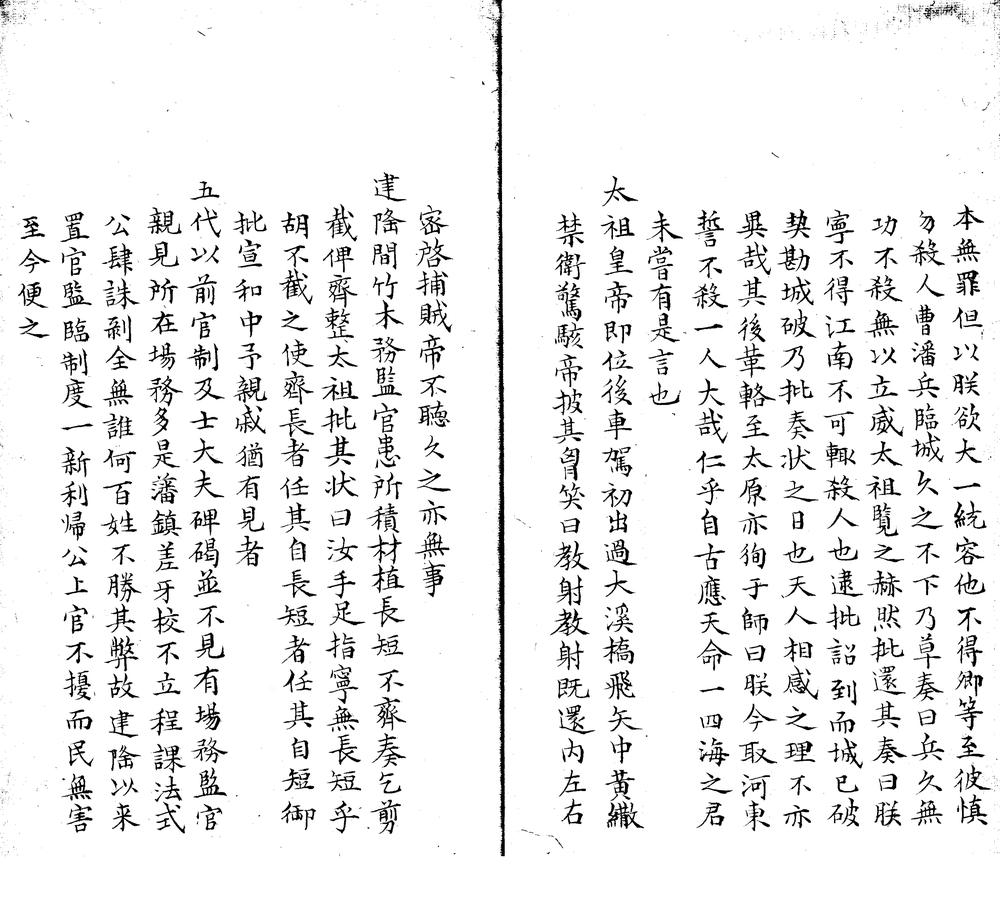 本無罪但以朕欲大一統容他不得卿等至彼慎
勿殺人曹潘兵臨城久之不下乃草奏曰兵久無
功不殺無以立威太祖覽之赫然批還其奏曰朕
寧不得江南不可輙殺人也逮批詔到而城已破
契勘城破乃批奏状之日也天人相感之理不亦
異哉其後革輅至太原亦狥于師曰朕今取河東
誓不殺一人大哉仁乎自古應天命一四海之君
未嘗有是言也
太祖皇帝即位後車駕初出過大溪橋飛矢中黄繖
禁衛驚駭帝披其胷笑曰教射教射既還内左右
密啓捕賊帝不聽久之亦無事
建隆間竹木務監官患所積材植長短不齊奏乞剪
截俾齊整太祖批其状曰汝手足指寧無長短乎
胡不截之使齊長者任其自長短者任其自短御
批宣和中予親戚猶有見者
五代以前官制及士大夫碑碣並不見有場務監官
親見所在場務多是藩鎮差牙校不立程課法式
公肆誅剥全無誰何百姓不勝其弊故建隆以来
置官監臨制度一新利歸公上官不擾而民無害
至今便之